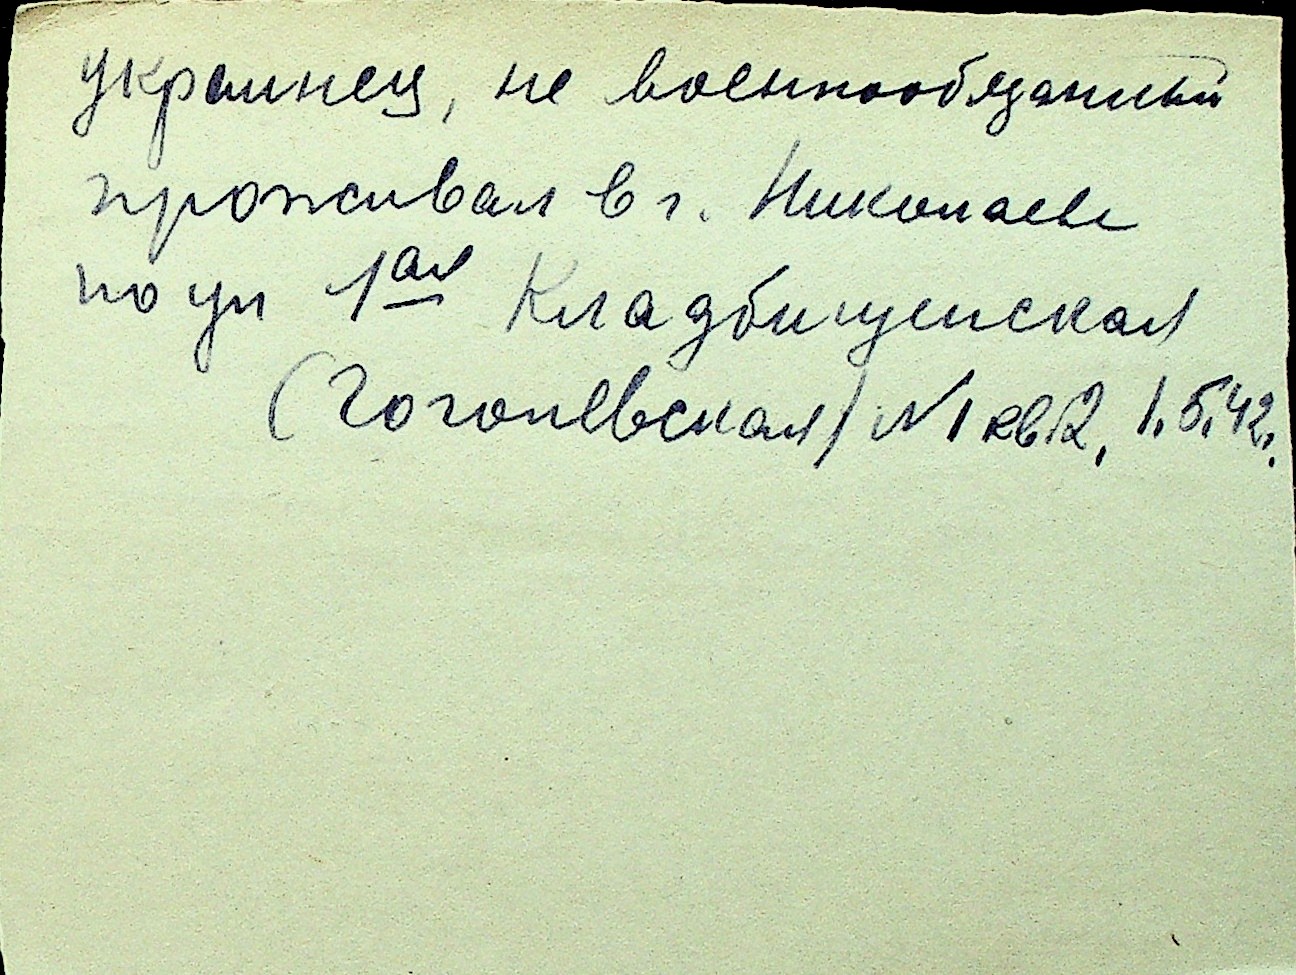 украинец, не военнообязанный
проживал в г. Николаеве
по ул 1ая Кладбищенская
(Гоголевская) № 1 кв 2, 1.5.42.